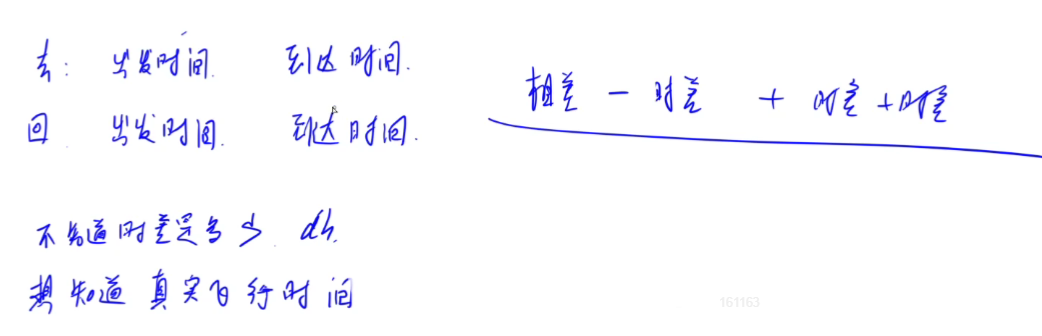 去: 出发时间. 到达时间.
回 出发时间. 到达时间.
相差 - 时差 + 时差 + 时差
不知道时差是多少. dh.
想知道真实飞行时间
161163